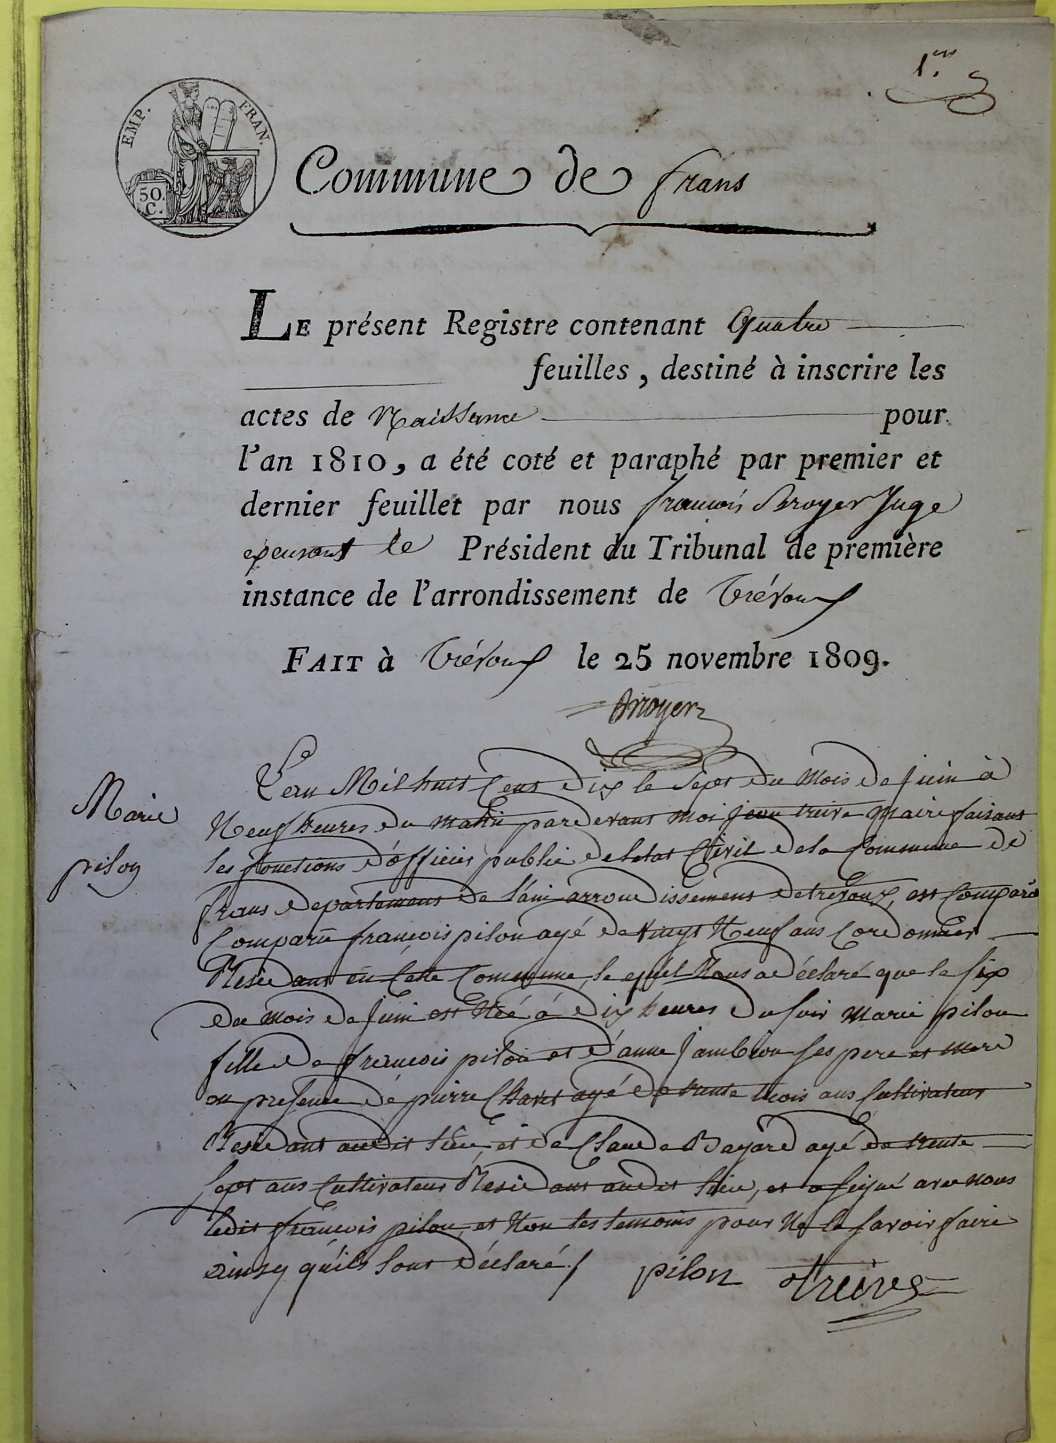 1er
EMP. FRAN.
50.
C.
Commune de frans
LE présent Registre contenant Quatre
feuilles, destiné à inscrire les
actes de Naissance pour
l'an 1810, a été coté et paraphé par premier et
dernier feuillet par nous françois Broyer Juge
exerçant le Président du Tribunal de première
instance de l'arrondissement de Trévoux
FAIT à Trévoux le 25 novembre 1809.
Broyer
Marie
pilon
L'an Mil huit Cent Dix le Sept du Mois De Juin à
Neuf heures du matin pardevant Moi Jean treive Maire faisant
les fonctions d'officier public de letat Civil de la Commune de
frans departement de l'ain arrondissement de trévoux, est Comparu
Comparu françois pilon agé de vingt Neuf ans Cordonnier
Residant en Cette Commune, lequel Nous a déclaré que le six
du mois de Juin est Née à dix heures du soir Marie pilon
fille de françois pilon et d'anne Jambion ses pere et mere
en presence de pierre Charet agé de trente trois ans Cultivateur
Residant audit lieu, et de Claude Bayard agé de trente
sept ans Cultivateur Residant audit lieu, et a signé avec nous
ledit françois pilon, et Non les temoins pour Ne le savoir faire
ainsy qu'ils l'ont déclaré /
pilon treive